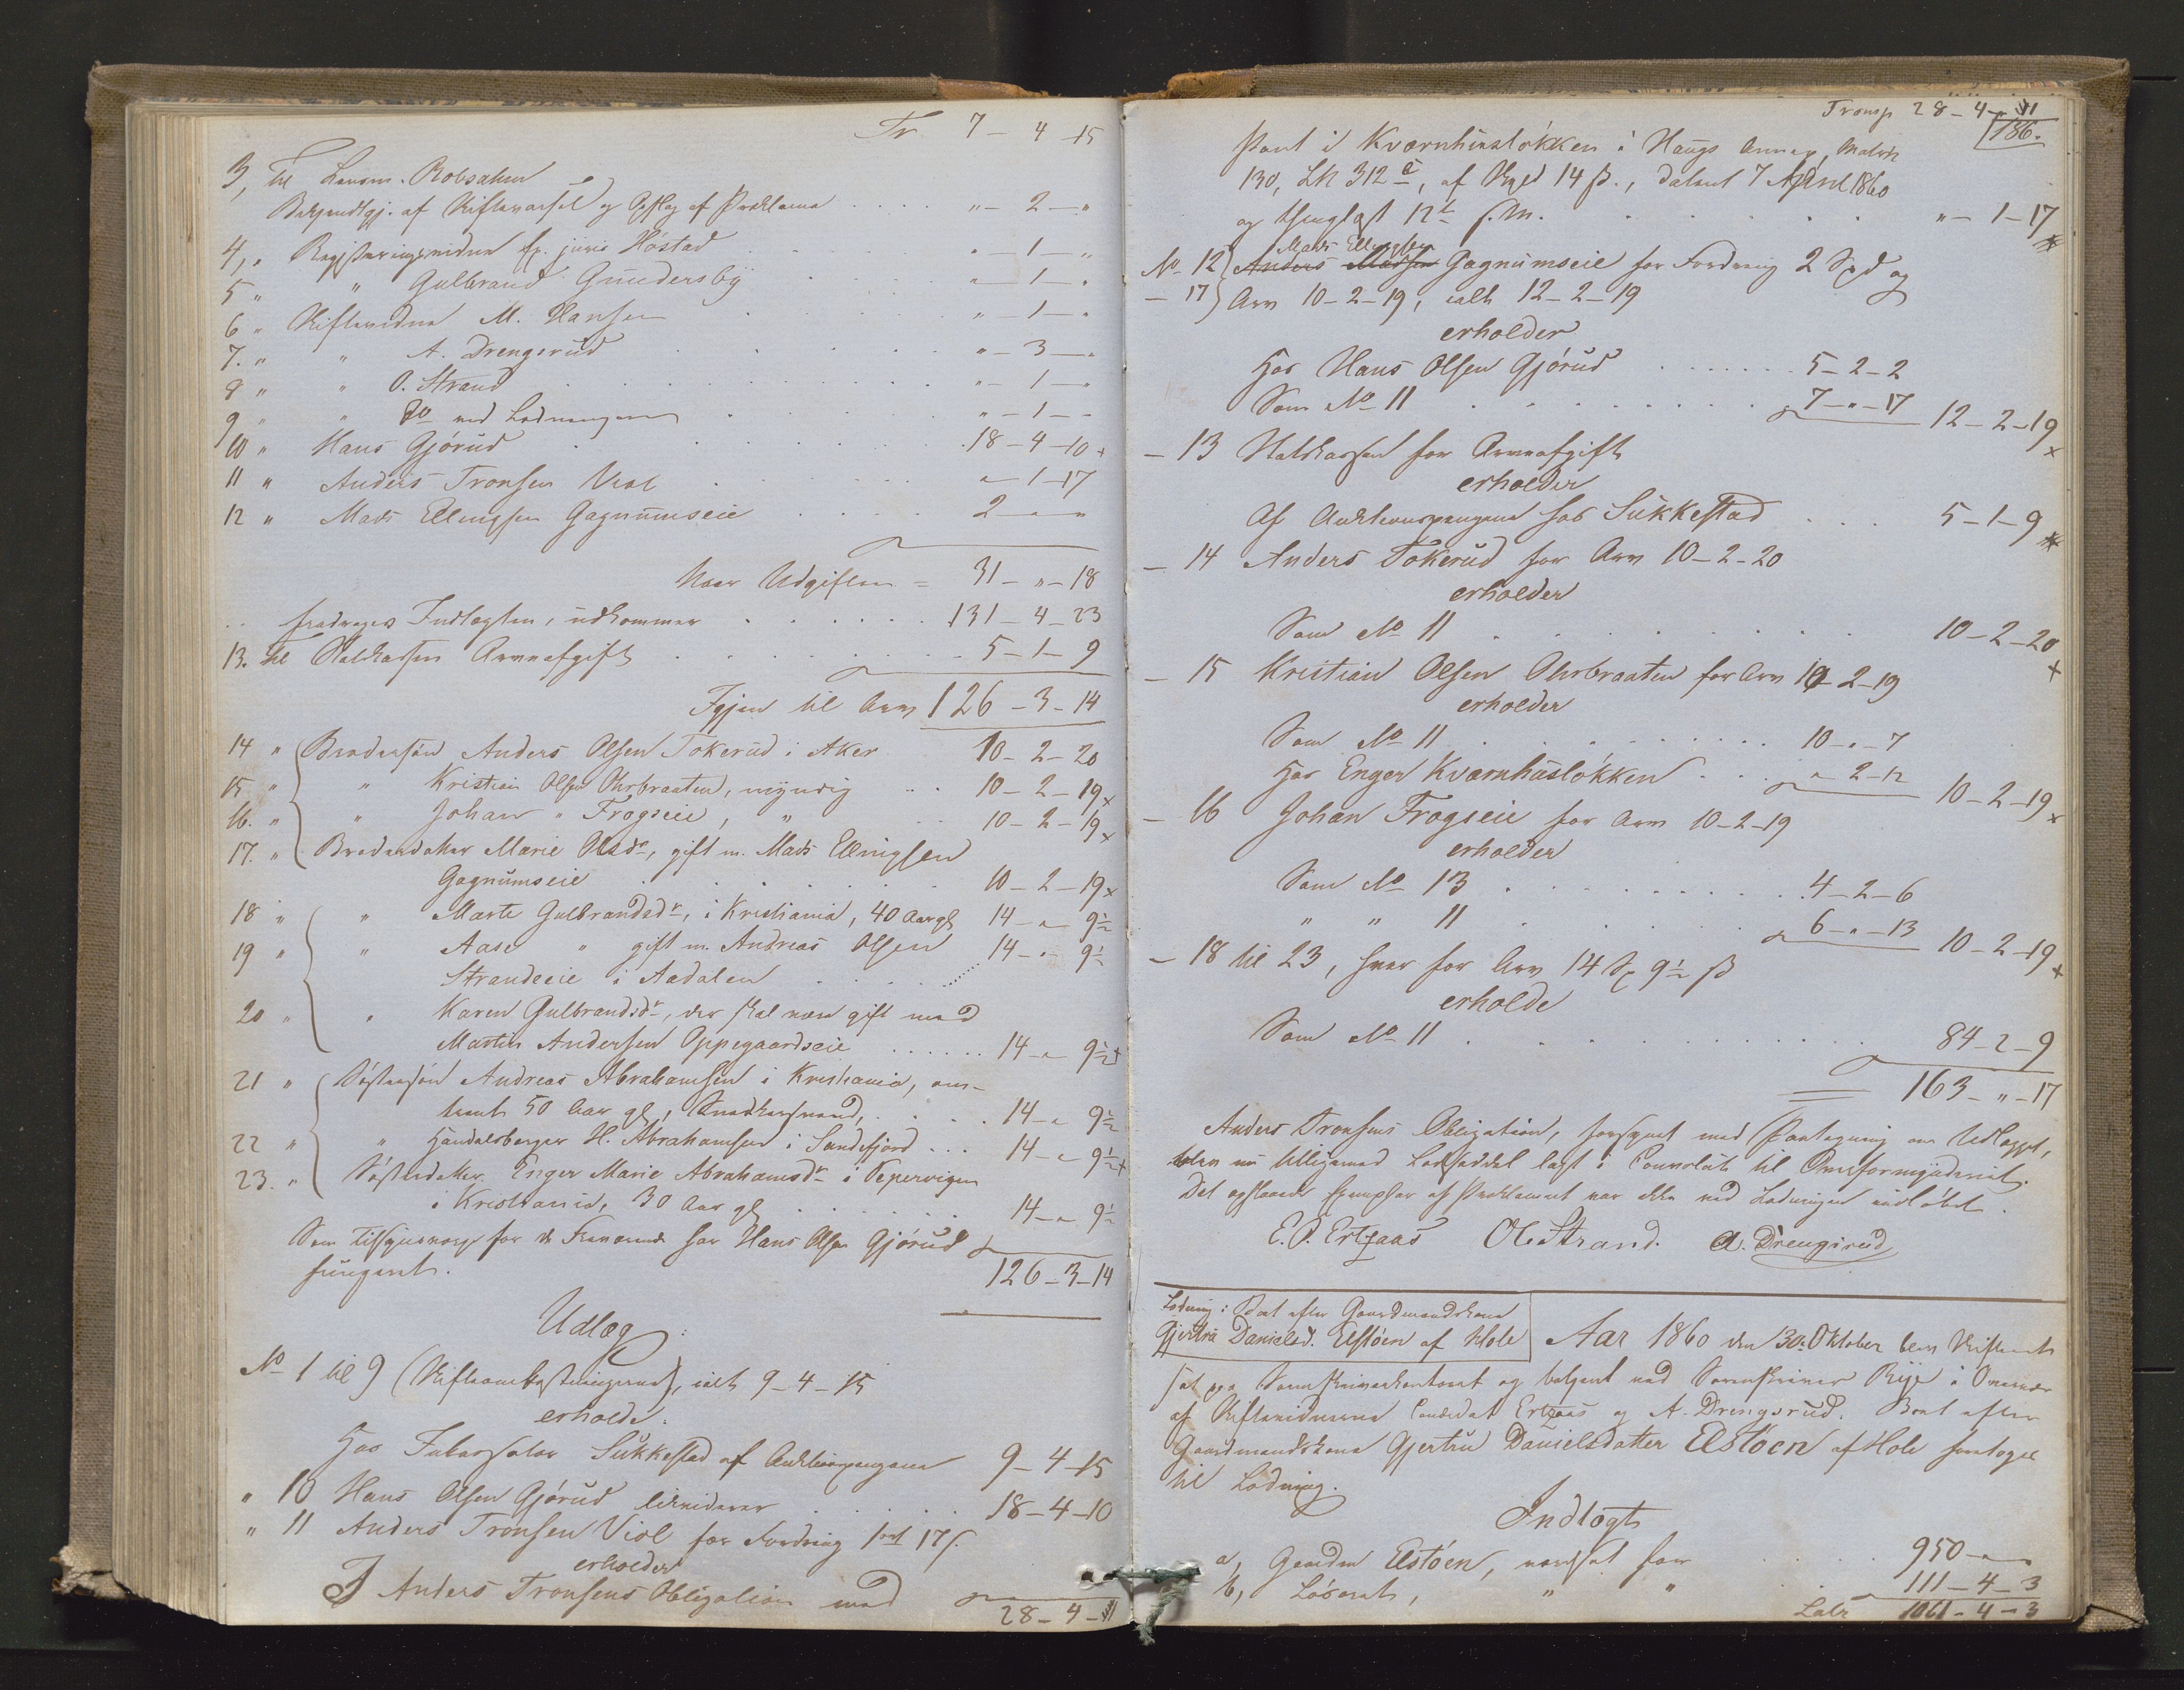 Tr. 7 - 4 - 15
3, til Lensm. Robsahm
Bekjendtgj. af Skiftevarsel og Opslag af Proklama . . . . " - 2 - "
4, " Registreringsvidne Ex. juris Høstad " - 1 - "
5 " " Gulbrand Gundersby " - 1 - "
6 " Skiftevidne M. Hansen " - 1 - "
7. " " A. Drengsrud " - 3 - "
8 " " O. Strand " - 1 - "
9 " " Do ved Lodningen " - 1 - "
10 " Hans Gjörud 18 - 4 - 10 x
11 " Anders Tronsen Viol " - 1 - 17
12 " Mads Ellingsen Gagnumseie 2 - " - "
Naar Udgiften = 31 - " - 18
fradrages Indtægten, udkommer 131 - 4 - 23
13. til Statskassen Arveafgift 5 - 1 - 9
Igjen til Arv 126 - 3 - 14
14 " Brodersøn Anders Olsen Tokerud i Aker 10 - 2 - 20
15 " " Kristian Olsen Ohrbraaten, myndig 10 - 2 - 19 x
16. " " Johan " Frogseie, " 10 - 2 - 19 x
17. " Broderdatter Marie Olsdr, gift m. Mads Ellingsen
Gagnumseie 10 - 2 - 19 x
18 " " Marte Gulbrandsdr, i Kristiania, 40 Aar gl 14 - " - 9½
19 " " Aase " gift m. Andreas Olsen 14 - " - 9½
Strandeeie i Aadalen
20 " " Karen Gulbrandsdr, der skal være gift med
Martin Andersen Oppegaardseie 14 - " - 9½ x
21 " Søstersøn Andreas Abrahamsen i Kristiania, om-
trent 50 Aar gl, Snedkersvend, 14 - " - 9½
22 " " Handelsborger H. Abrahamsen i Sandefjord 14 - " - 9½ x
23. " Søsterdatter Enger Marie Abrahamsdr i Pepervigen
i Kristiania, 30 Aar gl 14 - " - 9½
Som Tilsynsværge for de Fraværende har Hans Olsen Gjörud
fungeret. 126 - 3 - 14
Udlæg:
No 1 til 9 (Skifteomkostningerne), ialt 9 - 4 - 15
erholde.
Hos Inkassator Sukkestad af Auktionspengene 9 - 4 - 15
" 10 Hans Olsen Gjörud likviderer 18 - 4 - 10
" 11 Anders Tronsen Viol for Fordring 1 ort 17 s.
erholder
I Anders Tronsens Obligation med
28 - 4 - 11
Transp 28 - 4 - 11
186.
Pant i Kværnhusløkken i Haugs Annex, Matr
130, Lk 312 c, af Skyld 14 ß., dateret 7 April 1860
og thinglæst 12te s. M. " - 1 - 17 x
No 12 Anders Madsen Mads Ellingsen Gagnumseie for Fordring 2 Spd og
- 17 Arv 10 - 2 - 19, ialt 12 - 2 - 19
erholder
Hos Hans Olsen Gjörud 5 - 2 - 2
Som No 11 7 - " - 17 12 - 2 - 19 x
- 13 Statskassen for Arveafgift
erholder
Af Auktionspengene hos Sukkestad 5 - 1 - 9 x
- 14 Anders Tokerud for Arv 10 - 2 - 20
erholder
Som No 11 10 - 2 - 20 x
- 15 Kristian Olsen Ohrbraaten for Arv 10 - 2 - 19
erholder
Som No 11 10 - " - 7
Hos Enger Kværnhusløkken " - 2 - 12 10 - 2 - 19 x
- 16 Johan Frogseie for Arv 10 - 2 - 19
erholder
Som No 13 4 - 2 - 6
" " 11 6 - " - 13 10 - 2 - 19 x
- 18 til 23, hver for Arv 14 Sp 9½ ß
erholde
Som No 11 84 - 2 - 9
163 - " - 17
Anders Tronsens Obligation, forsynet med Paategning om Udlægget,
blev nu tilligemed Lodseddel lagt i Convolut til Overformynderiet.
Det opslaaede Exemplar af Proklamaet var ikke ved Lodningen indløbet.
E. O. Ertzaas Ol Strand. A. Drengsrud
Lodning i Boet efter Gaardmandskone
Gjertru Danielsd. Elstöen af Hole
Aar 1860 den 30. Oktober blev Skifteret
sat paa Sorenskriverkontoret og betjent ved Sorenskriver Rye i Overvær
af Skiftevidnerne Candidat Ertzaas og A. Drengsrud. Boet efter
Gaardmandskone Gjertru Danielsdatter Elstöen af Hole foretoges
til Lodning.
Indtægt
a, Gaarden Elstöen, værdsat for 950 - " - "
b, Løsøret, " " 111 - 4 - 3
Lats 1061 - 4 - 3